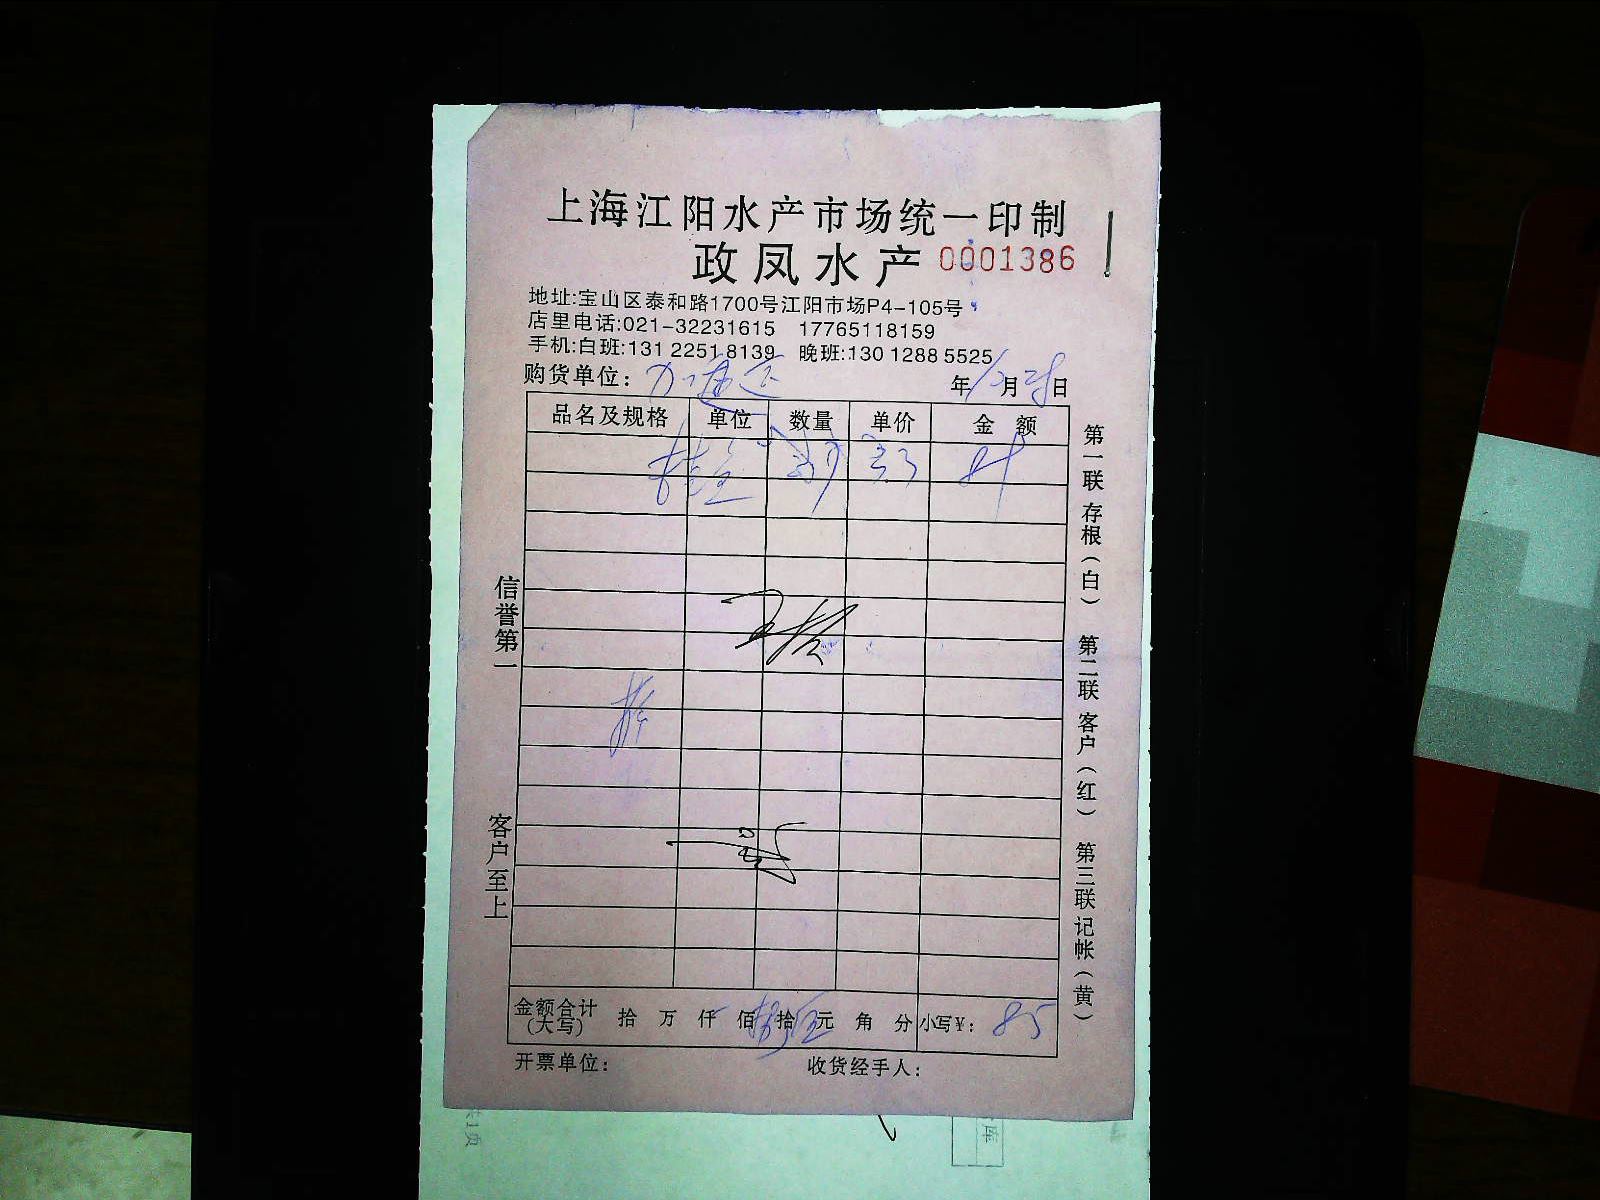 上海江阳水产市场统一印制
政凤水产 0001386
地址:宝山区泰和路1700号江阳市场P4-105号
店里电话:021-32231615 17765118159
手机:白班:131 2251 8139 晚班:130 1288 5525
购货单位:
年 12 月 28 日
品名及规格 单位 数量 单价 金额
桂鱼
信誉第一
客户至上
第一联 存根(白) 第二联 客户(红) 第三联 记帐(黄)
金额合计(大写) 拾 万 仟 佰 拾 元 角 分 小写¥: 85
开票单位: 收货经手人: